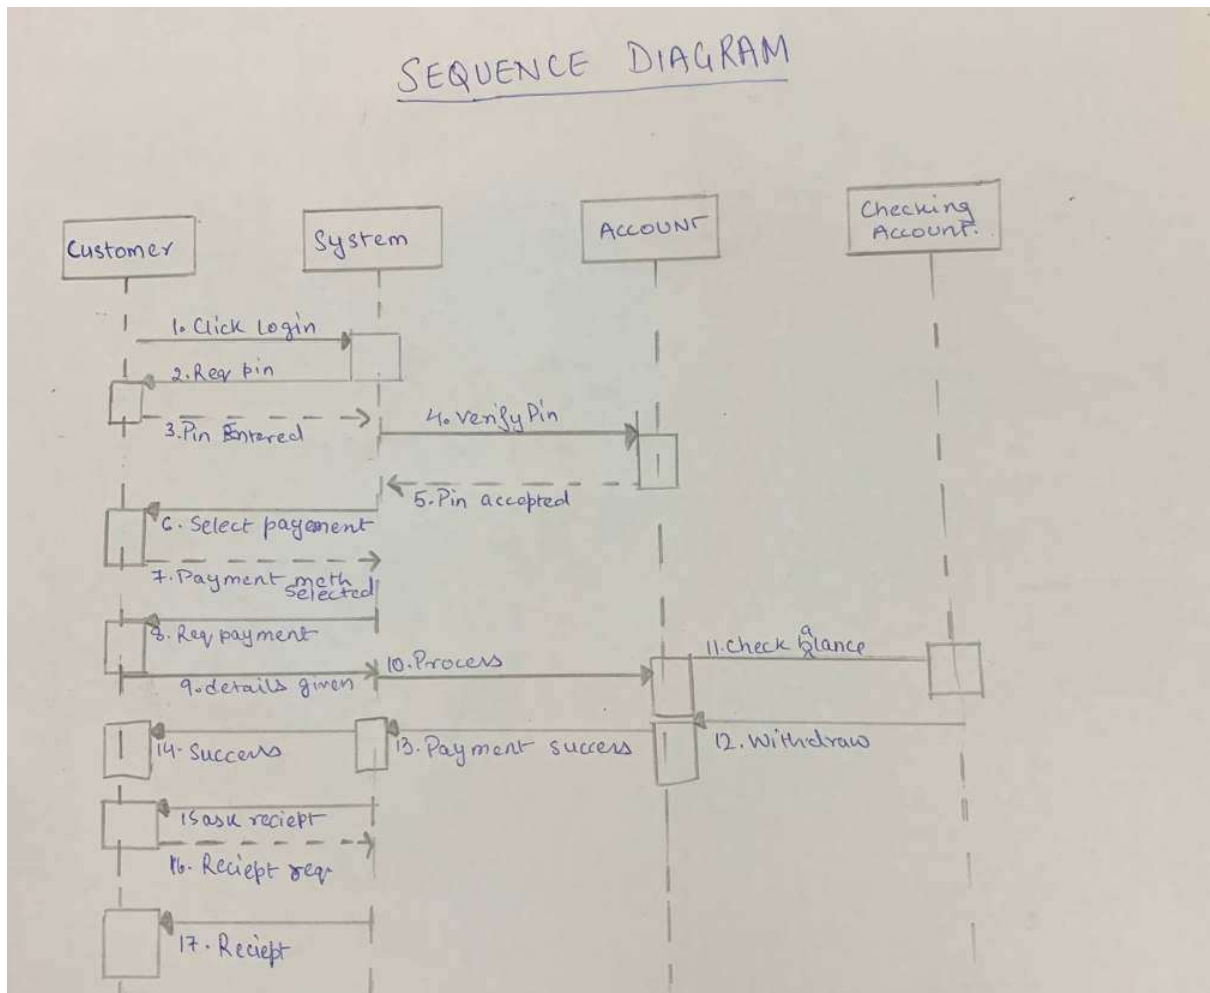 SEQUENCE DIAGRAM
Customer
System
ACCOUNT
Checking
Account.
1. Click Login
2. Req pin
3. Pin Entered
4. Verify Pin
5. Pin accepted
6. Select payement
7. Payment meth
selected
8. Req payment
9. details given
10. Process
11. Check balance
12. Withdraw
13. Payment success
14. Success
15 ask reciept
16. Reciept req.
17. Reciept